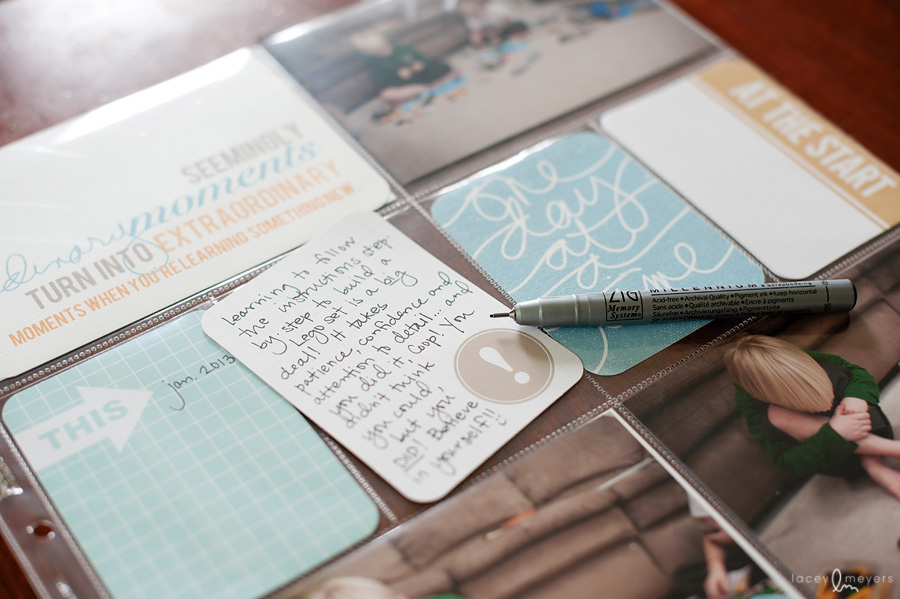 SEEMINGLY
ordinary moments
TURN INTO EXTRAORDINARY
MOMENTS WHEN YOU'RE LEARNING SOMETHING NEW.
AT THE START
one
day
at
a
time
Learning to follow
the instructions step
by step to build a
Lego set is a big
deal! It takes
patience, confidence and
attention to detail... and
you did it Coop! You
didn't think
you could,
but you
DID! Believe
in yourself!!
!
ZIG
Memory
Systems
MILLENNIUM
Acid-free • Archival Quality • Pigment ink • Keep horizontal
Sans acids • Qualité archivable • Encre à pigments
Säurefrei • Archivierungsfähig
THIS
Jan. 2013
lacey lm meyers